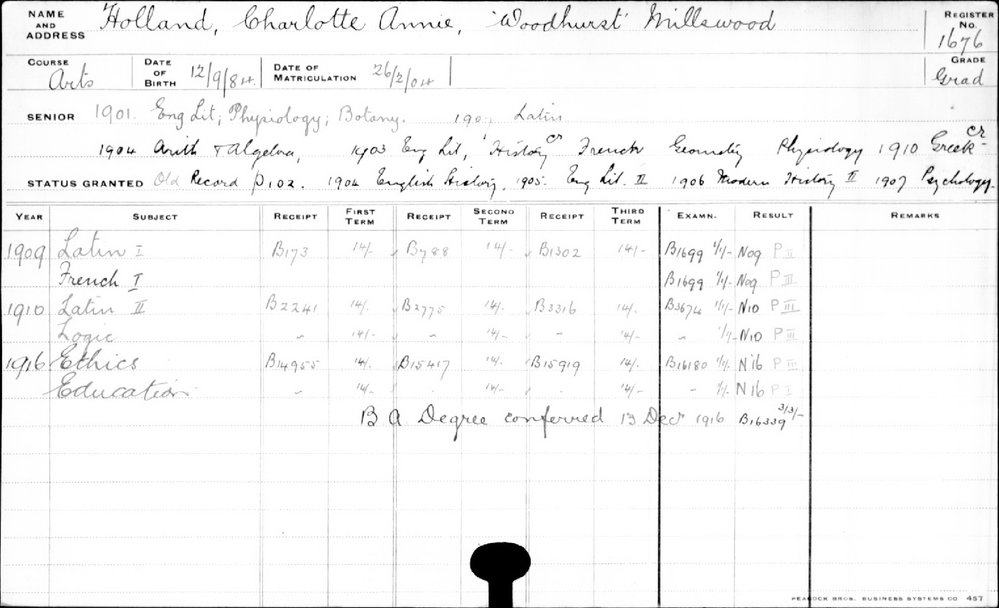 NAME AND ADDRESS Holland, Charlotte Annie, 'Woodhurst' Millswood REGISTER No. 1676
COURSE Arts DATE OF BIRTH 12/9/84. DATE OF MATRICULATION 26/2/04 GRADE Grad
SENIOR 1901. Eng Lit; Physiology; Botany. 190 Latin
1904 Arith & Algebra, 1903 Eng Lit, History cr French Geometry Physiology 1910 Greek cr
STATUS GRANTED Old Record p102. 1904 English History, 1905. Eng Lit. II 1906 Modern History II 1907 Psychology.
YEAR SUBJECT RECEIPT FIRST TERM RECEIPT SECOND TERM RECEIPT THIRD TERM EXAMN. RESULT REMARKS
1909 Latin I B173 14/- B788 14/- B1302 14/- B1699 1/1/- N09 P II
French I B1699 1/1/- N09 P III
1910 Latin II B2241 14/. B2775 14/. B3316 14/. B3674 1/1/- N10 P III
Logic " 14/- " 14/- " 14/- " 1/1/- N10 P III
1916 Ethics B14955 14/. B15417 14. B15919 14/. B16180 1/1/- N16 P III
Education " 14/- . 14/- " 14/- " 1/1/- N16 P I
B A Degree conferred 13 Decr 1916 B16339 3/3/-
PEACOCK BROS. BUSINESS SYSTEMS CO 457